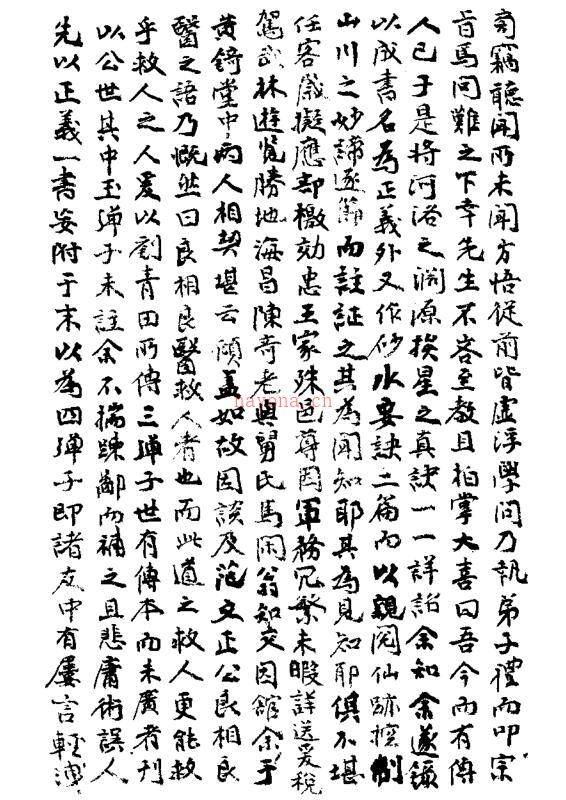 竊聽聞所未聞方悟從前皆虛浮學問乃執弟子禮而叩宗
旨焉問難之下幸先生不吝至教且拍掌大喜曰吾今而有傳
人已于是將河洛之淵源挨星之真訣一一詳詒余知余遂鐫
以成書名為正義外又作砂水要訣二篇而以親閱仙跡控制
山川之妙諦逐篇而註証之其為聞知耶其為見知耶俱不堪
任客歲擬應部檄効忠王家殊邑尊因軍務冗繁未暇詳送爰稅
駕武林遊覽勝地海昌陳奇老與舅氏馬閑翁知交因館余于
黃錡堂中兩人相契堪云傾蓋如故因談及范文正公良相良
醫之語乃慨然曰良相良醫救人者也而此道之救人更能救
乎救人之人爰以劉青田所傳三彈子世有傳本而未廣者刊
以公世其中玉彈子未註余不揣踈鄙而補之且悲庸術誤人
先以正義一書妄附于末以為四彈子即諸友中有屢言輕洩
nayona.cn